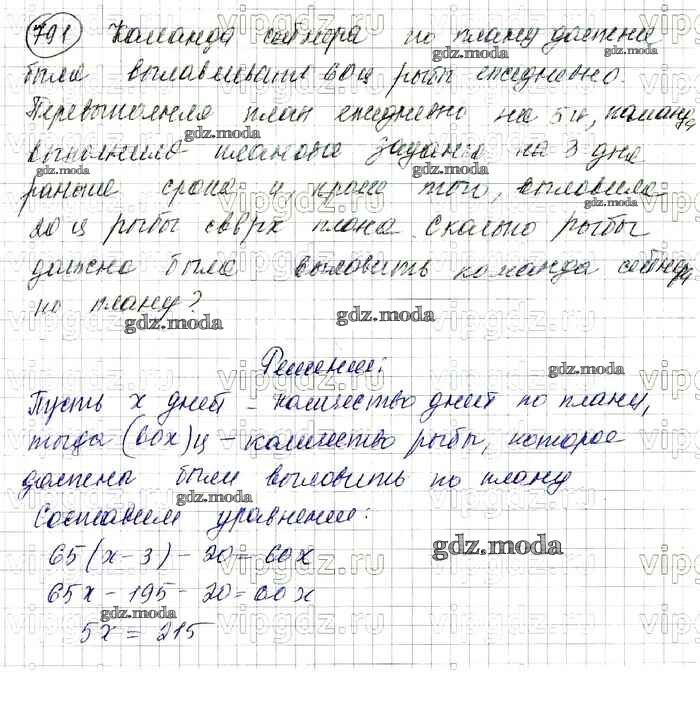 791 Команда сейнера по плану должна
была вылавливать 60 ц рыбы ежедневно.
Перевыполняя план ежедневно на 5 ц, команда
выполнила плановое задание на 3 дня
раньше срока и, кроме того, выловила
20 ц рыбы сверх плана. Сколько рыбы
должна была выловить команда сейнера
по плану?
Решение:
Пусть x дней - количество дней по плану,
тогда (60x) ц - количество рыбы, которое
должны были выловить по плану
Составим уравнение:
65(x-3) - 20 = 60x
65x - 195 - 20 = 60x
5x = 215
gdz.moda
gdz.moda
gdz.moda
gdz.moda
gdz.moda
gdz.moda
gdz.moda
gdz.moda
gdz.moda
gdz.moda
vipgdz.ru